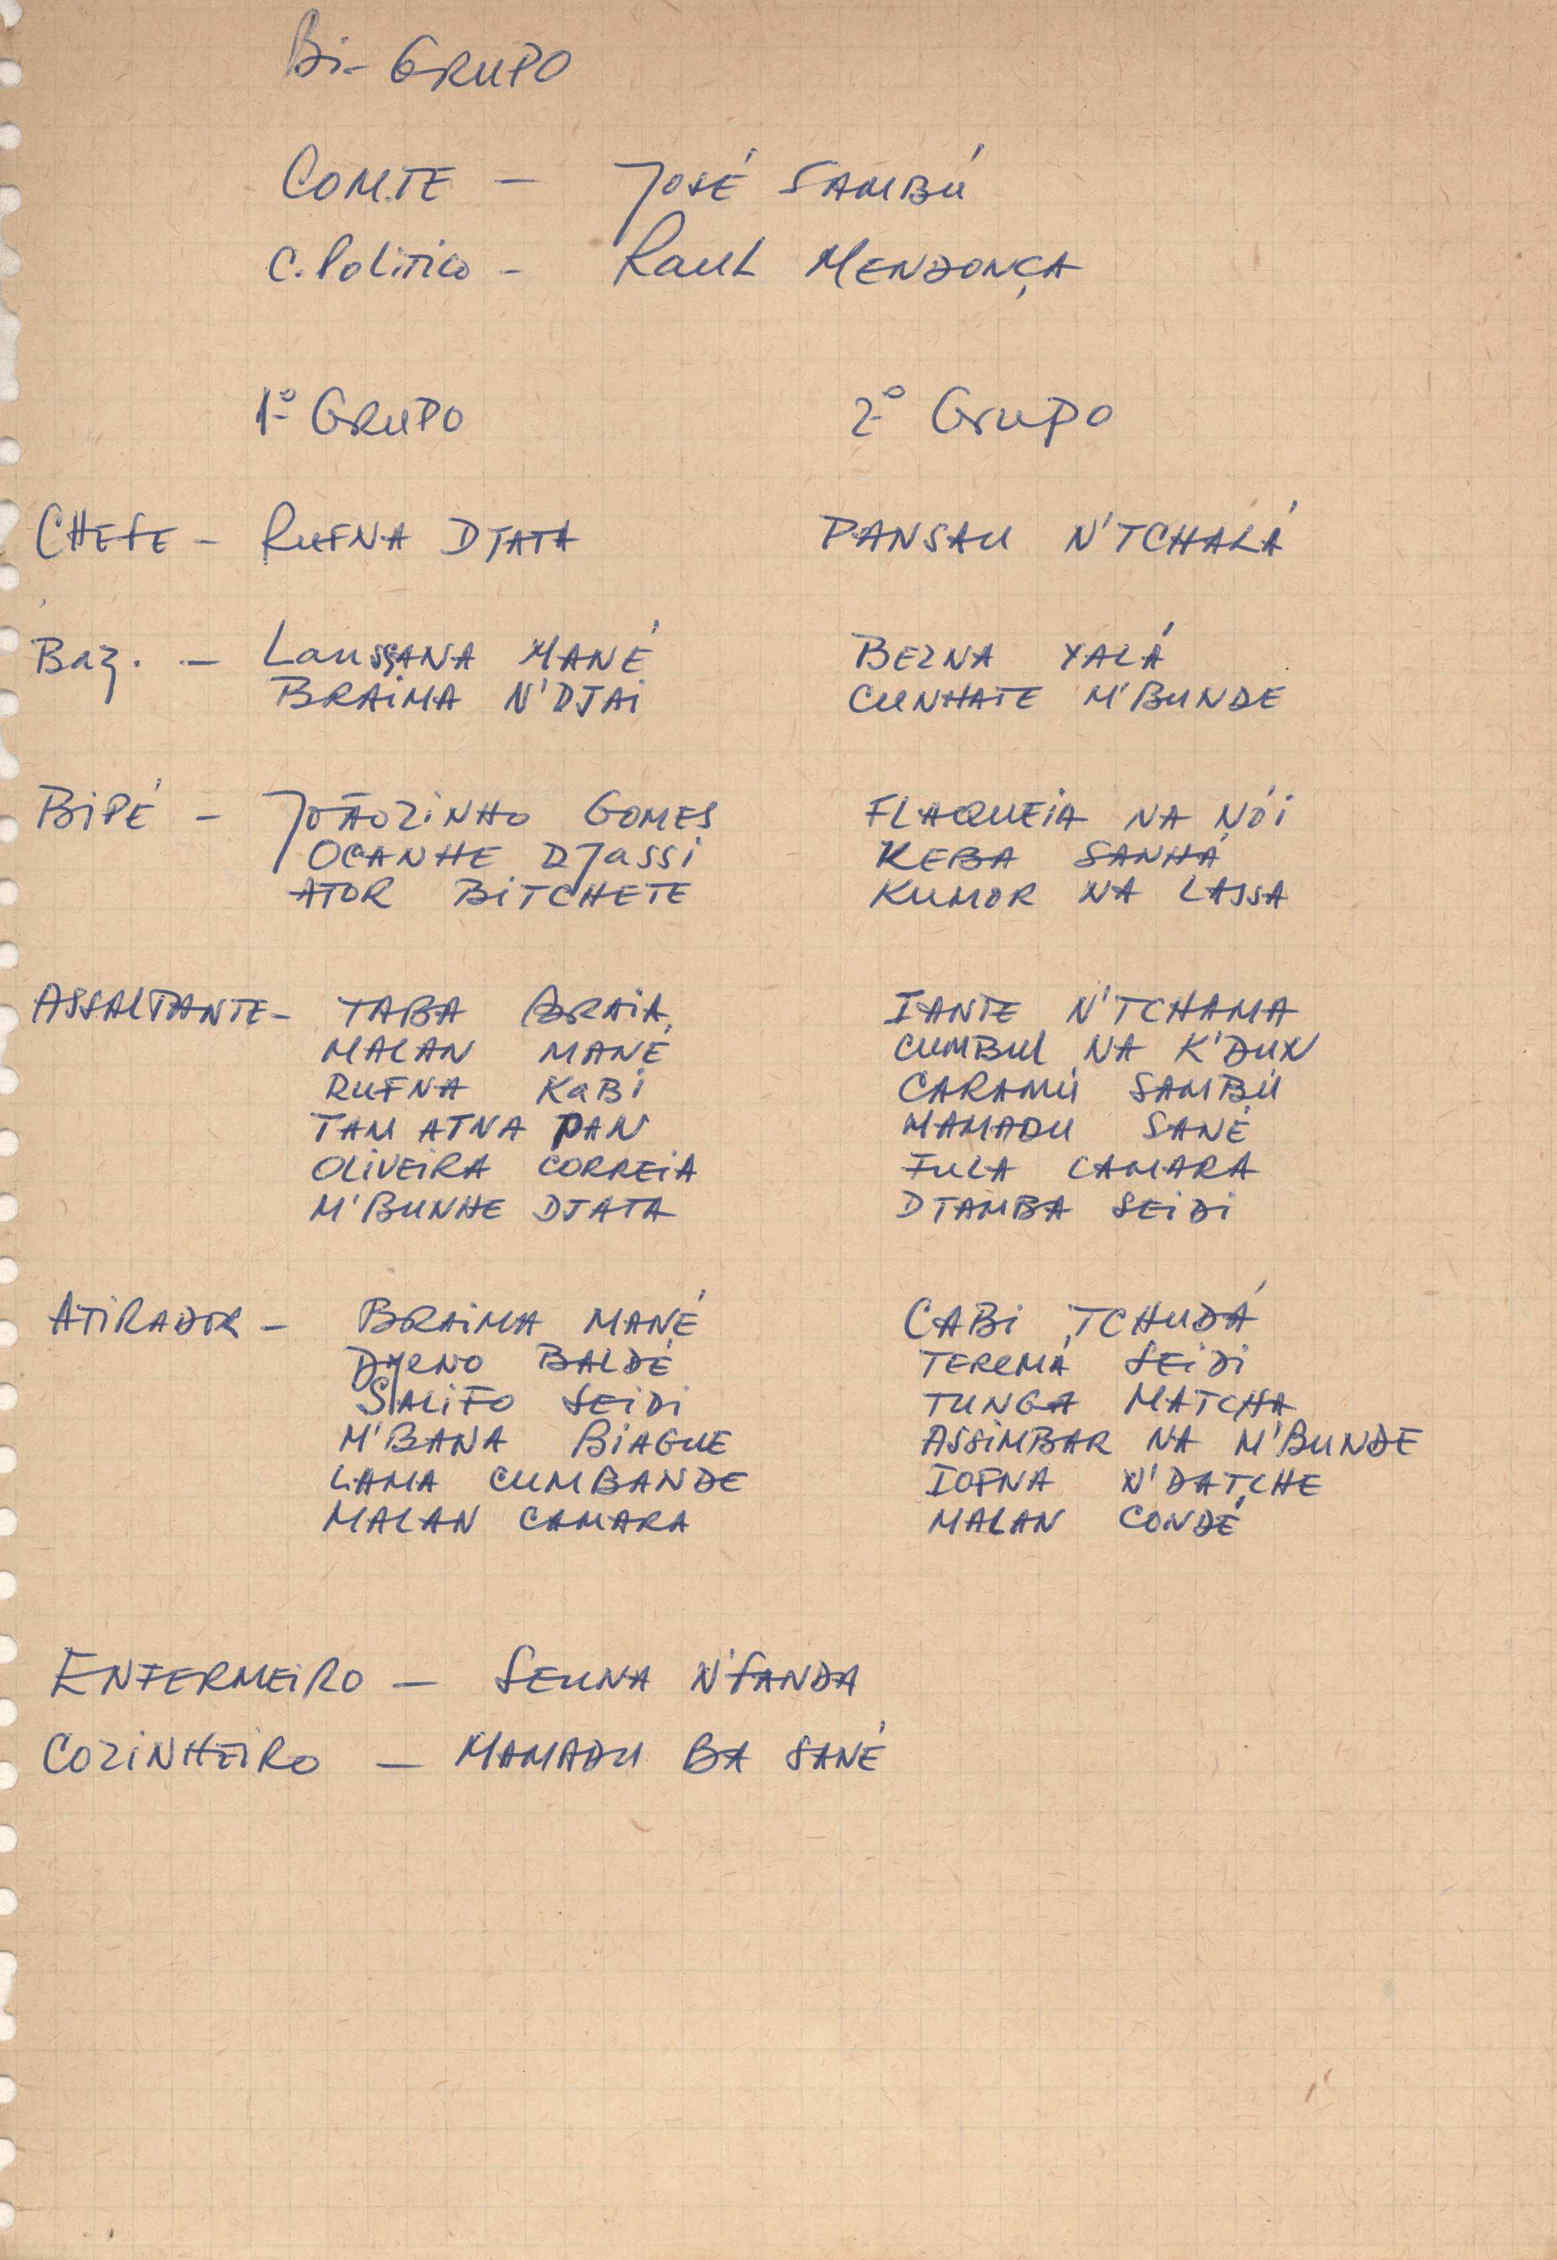 Bi-GRUPO
COM.TE - JOSÉ SAMBÚ
C. Politico - Raul MENDONÇA
1º GRUPO 2º Grupo
CHEFE - RUFNA DJATA PANSAU N'TCHALÁ
Baz. - LausSANA MANÉ BEZNA YALÁ
BRAIMA N'DJAI CUNHATE M'BUNDE
BIPÉ - JOÃOZINHO GOMES FLAQUEIA NA NÓI
OCANHE DJassi KEBA SANHÁ
ATOR BITCHETE KUMOR NA LASSA
ASSALTANTE - YABA IANTE N'TCHAMA
MALAN MANÉ CUMBUL NA K'DUN
RUFNA KaBi CARAMÚ SAMBÚ
TAM ATNA PAN MAMADU SANÉ
OLIVEIRA CORREIA FULA CAMARA
M'BUNHE DJATA DJAMBA SEIDI
ATIRADOR - BRAIMA MANÉ CABI TCHUDÁ
BALDÉ SEIDI
SALIFO SEIDI TUNGA MATCHA
M'BANA BIAGUE ASSIMBAR NA M'BUNDE
LAMA CUMBANDE IOFNA N'DATCHE
MALAN CAMARA MALAN CONDÉ
ENFERMEIRO - SEUNA N'FANDA
COZINHEIRO - MAMADU BA SANÉ